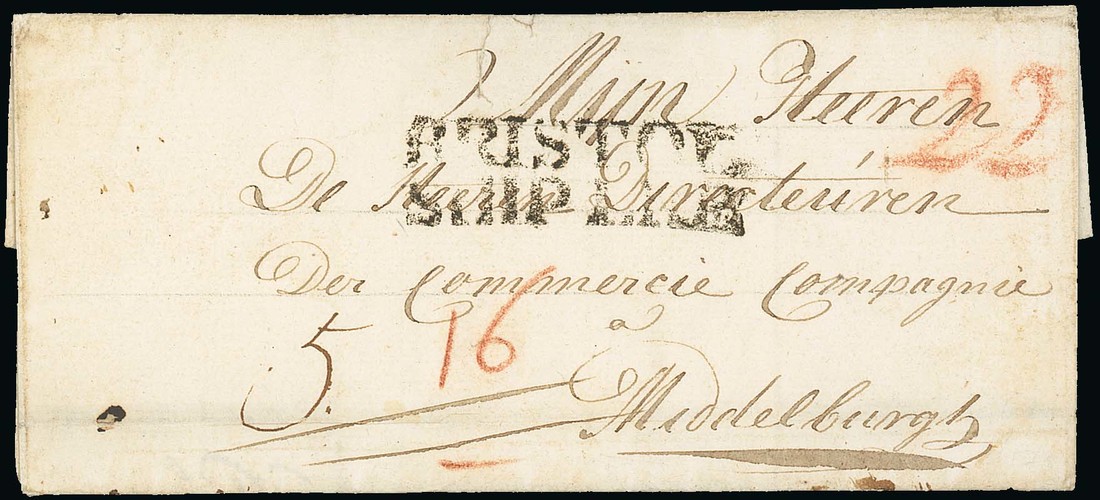 Mijn Heeren
22
BRISTOL
De Heeren Directeuren
SHIP LRE
Der Commercie Compagnie
a
16
5.
Middelburgh